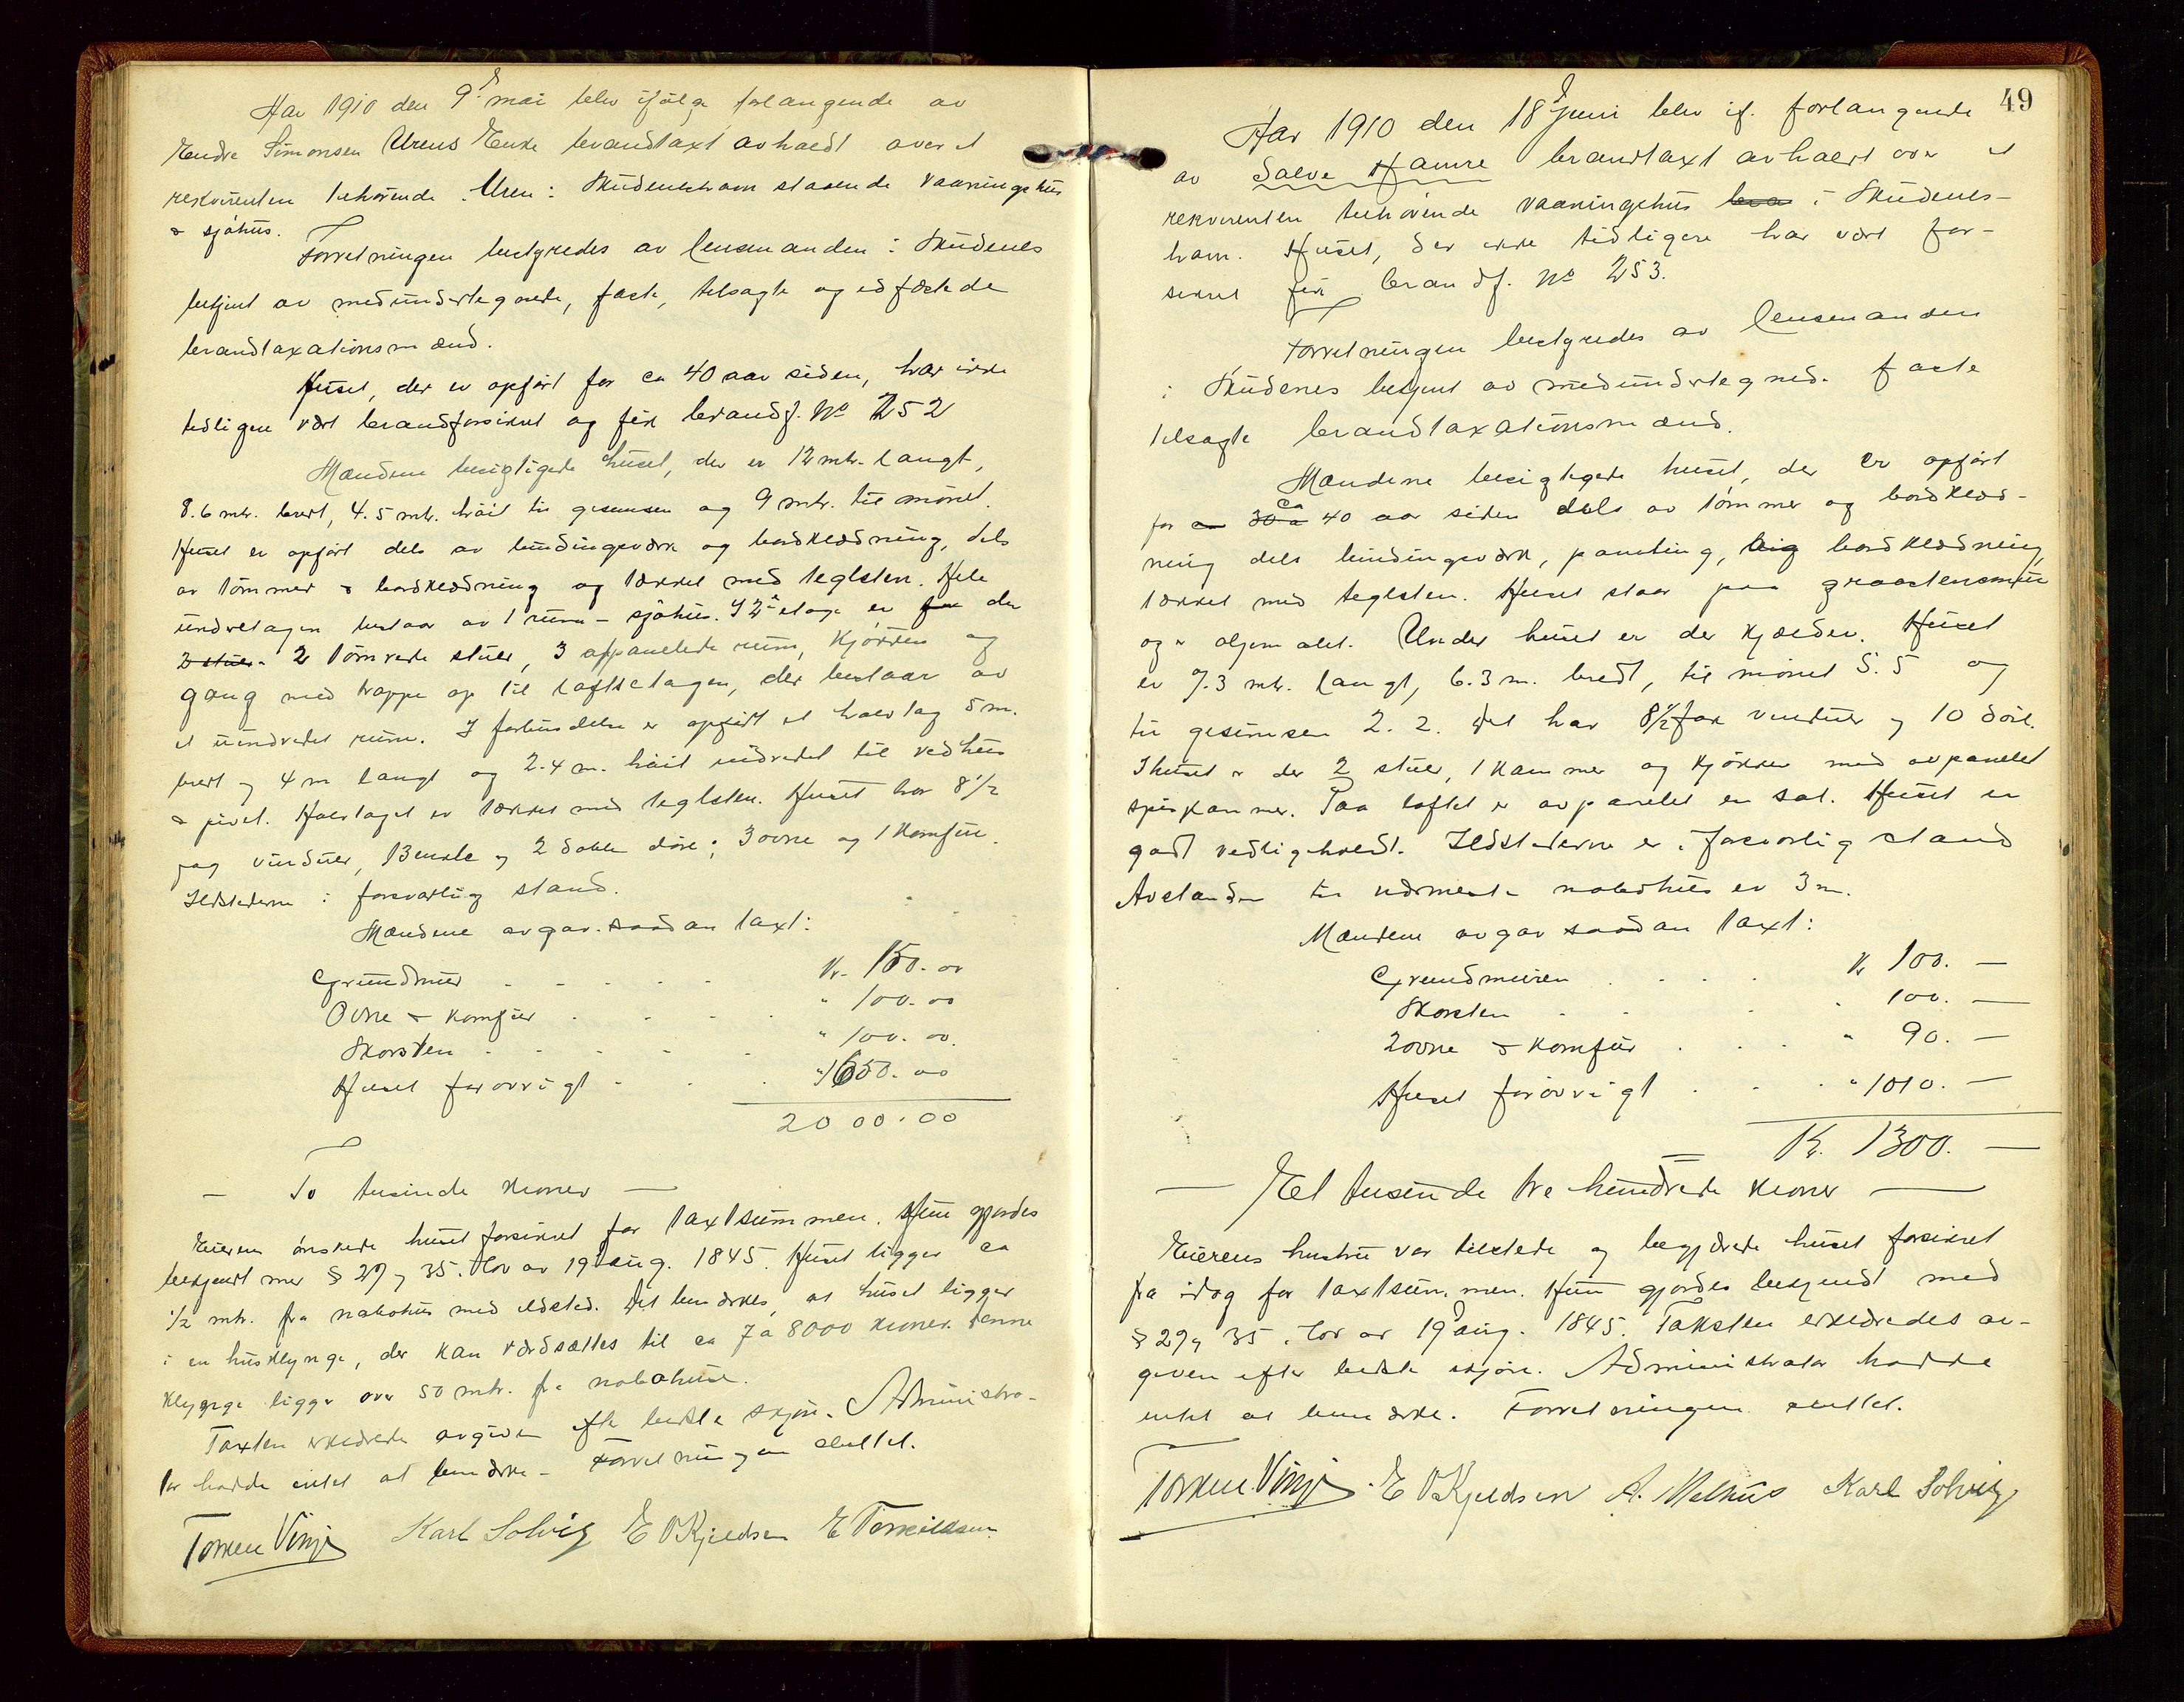 Aar 1910 den 9. mai blev ifølge forlangende av
Endre Simonsen Urens Enke brandtaxt avholdt over et
rekvirenten tilhørende "Uren" i Skudeneshavn staaende vaaningshus
& sjøhus.
Forretningen bestyredes av lensmanden i Skudenes
betjent av medundertegnede, faste, tilsagte og edfæstede
brandtaxationsmænd.
Huset, der er opført for ca 40 aar siden, har ikke
tidligere vært brandforsikret og fik brandf. No 252
Mændene besigtigede huset, der er 12 mtr. langt,
8.6 mtr. bredt, 4.5 mtr. høit til gesimsen og 9 mtr. til mønet.
Huset er opført dels av bindingsverk og bordklædning, dels
av tømmer & bordklædning og tækket med teglsten. Hele
underetagen bestaar av 1 rum - sjøhus. I 2. etage er der
2 stuer. 2 tømrede stuer, 3 oppanelede rum, kjøkken og
gang med trappe op til loftsetagen, der bestaar av
et uindredet rum. I forbindelse er opført et halvtag 5 m.
bredt og 4 m langt og 2.4 m. høit indredet til vedhus
& privet. Halvtaget er tækket med teglsten. Huset har 8 1/2
fag vinduer, 13 enkle og 2 doble døre; 3 ovne og 1 komfur.
Ildstederne i forsvarlig stand.
Mændene avgav saadan taxt:
Grundmur . . . . . Kr. 150.00
Ovne & komfur . . . . " 100.00
Skorsten . . . . . " 100.00
Huset forøvrigt . . . " 1650.00
2000.00
— To tusinde kroner —
Eieren ønskede huset forsikret for taxtsummen. Hun gjordes
bekjendt med § 27 og 35 i lov av 19 aug. 1845. Huset ligger ca
1/2 mtr. fra nabohus med ildsted. Det bemærkes, at huset ligger
i en husklynge, der kan værdsættes til ca 7 à 8000 kroner. Denne
klynge ligger over 50 mtr. fra nabohuse.
Taxten erklæredes avgiven efter bedste skjøn. Administra-
tor hadde intet at bemærke. Forretningen sluttet.
Torkel Vinje Karl Solvig E O Kjeldsen E Torkildsen
49
Aar 1910 den 18 juni blev if. forlangende
av Salve Hamre brandtaxt avholdt over et
rekvirenten tilhørende vaaningshus bra i Skudenes-
havn. Huset, der ikke tidligere har vært for-
sikret fik brandf. No 253.
Forretningen bestyredes av lensmanden
i Skudenes betjent av medundertegned. faste
tilsagte brandtaxationsmænd.
Mændene besigtigede huset, der er opført
for ca 30 a ca 40 aar siden dels av tømmer og bordklæd-
ning dels bindingsverk, paneling, bordklædning,
tækket med teglsten. Huset staar paa graastensmur
og er oljemalet. Under huset er der kjælder. Huset
er 7.3 mtr. langt, 6.3 m. bredt, til mønet 5.5 og
til gesimsen 2.2. Det har 8 1/2 fag vinduer og 10 døre.
I huset er der 2 stuer, 1 kammer og kjøkken med avpanelet
spiskammer. Paa loftet er avpanelet en sal. Huset er
godt vedligeholdt. Ildstederne er i forsvarlig stand
Avstanden til nærmeste nabohus er 3 m.
Mændene avgav saadan taxt:
Grundmuren . . . . Kr 100. —
Skorsten . . . . " 100. —
2 ovne & komfur . . . " 90. —
Huset forøvrigt . . . " 1010. —
Kr. 1300. —
— Et tusinde tre hundrede kroner —
Eierens hustru var tilstede og begjærede huset forsikret
fra idag for taxtsummen. Hun gjordes bekjendt med
§ 27 og 35 i lov av 19 aug. 1845. Taksten erklæredes av-
given efter bedste skjøn. Administrator hadde
intet at bemærke. Forretningen sluttet.
Torkel Vinje. E O Kjeldsen A. Melhus Karl Solvig